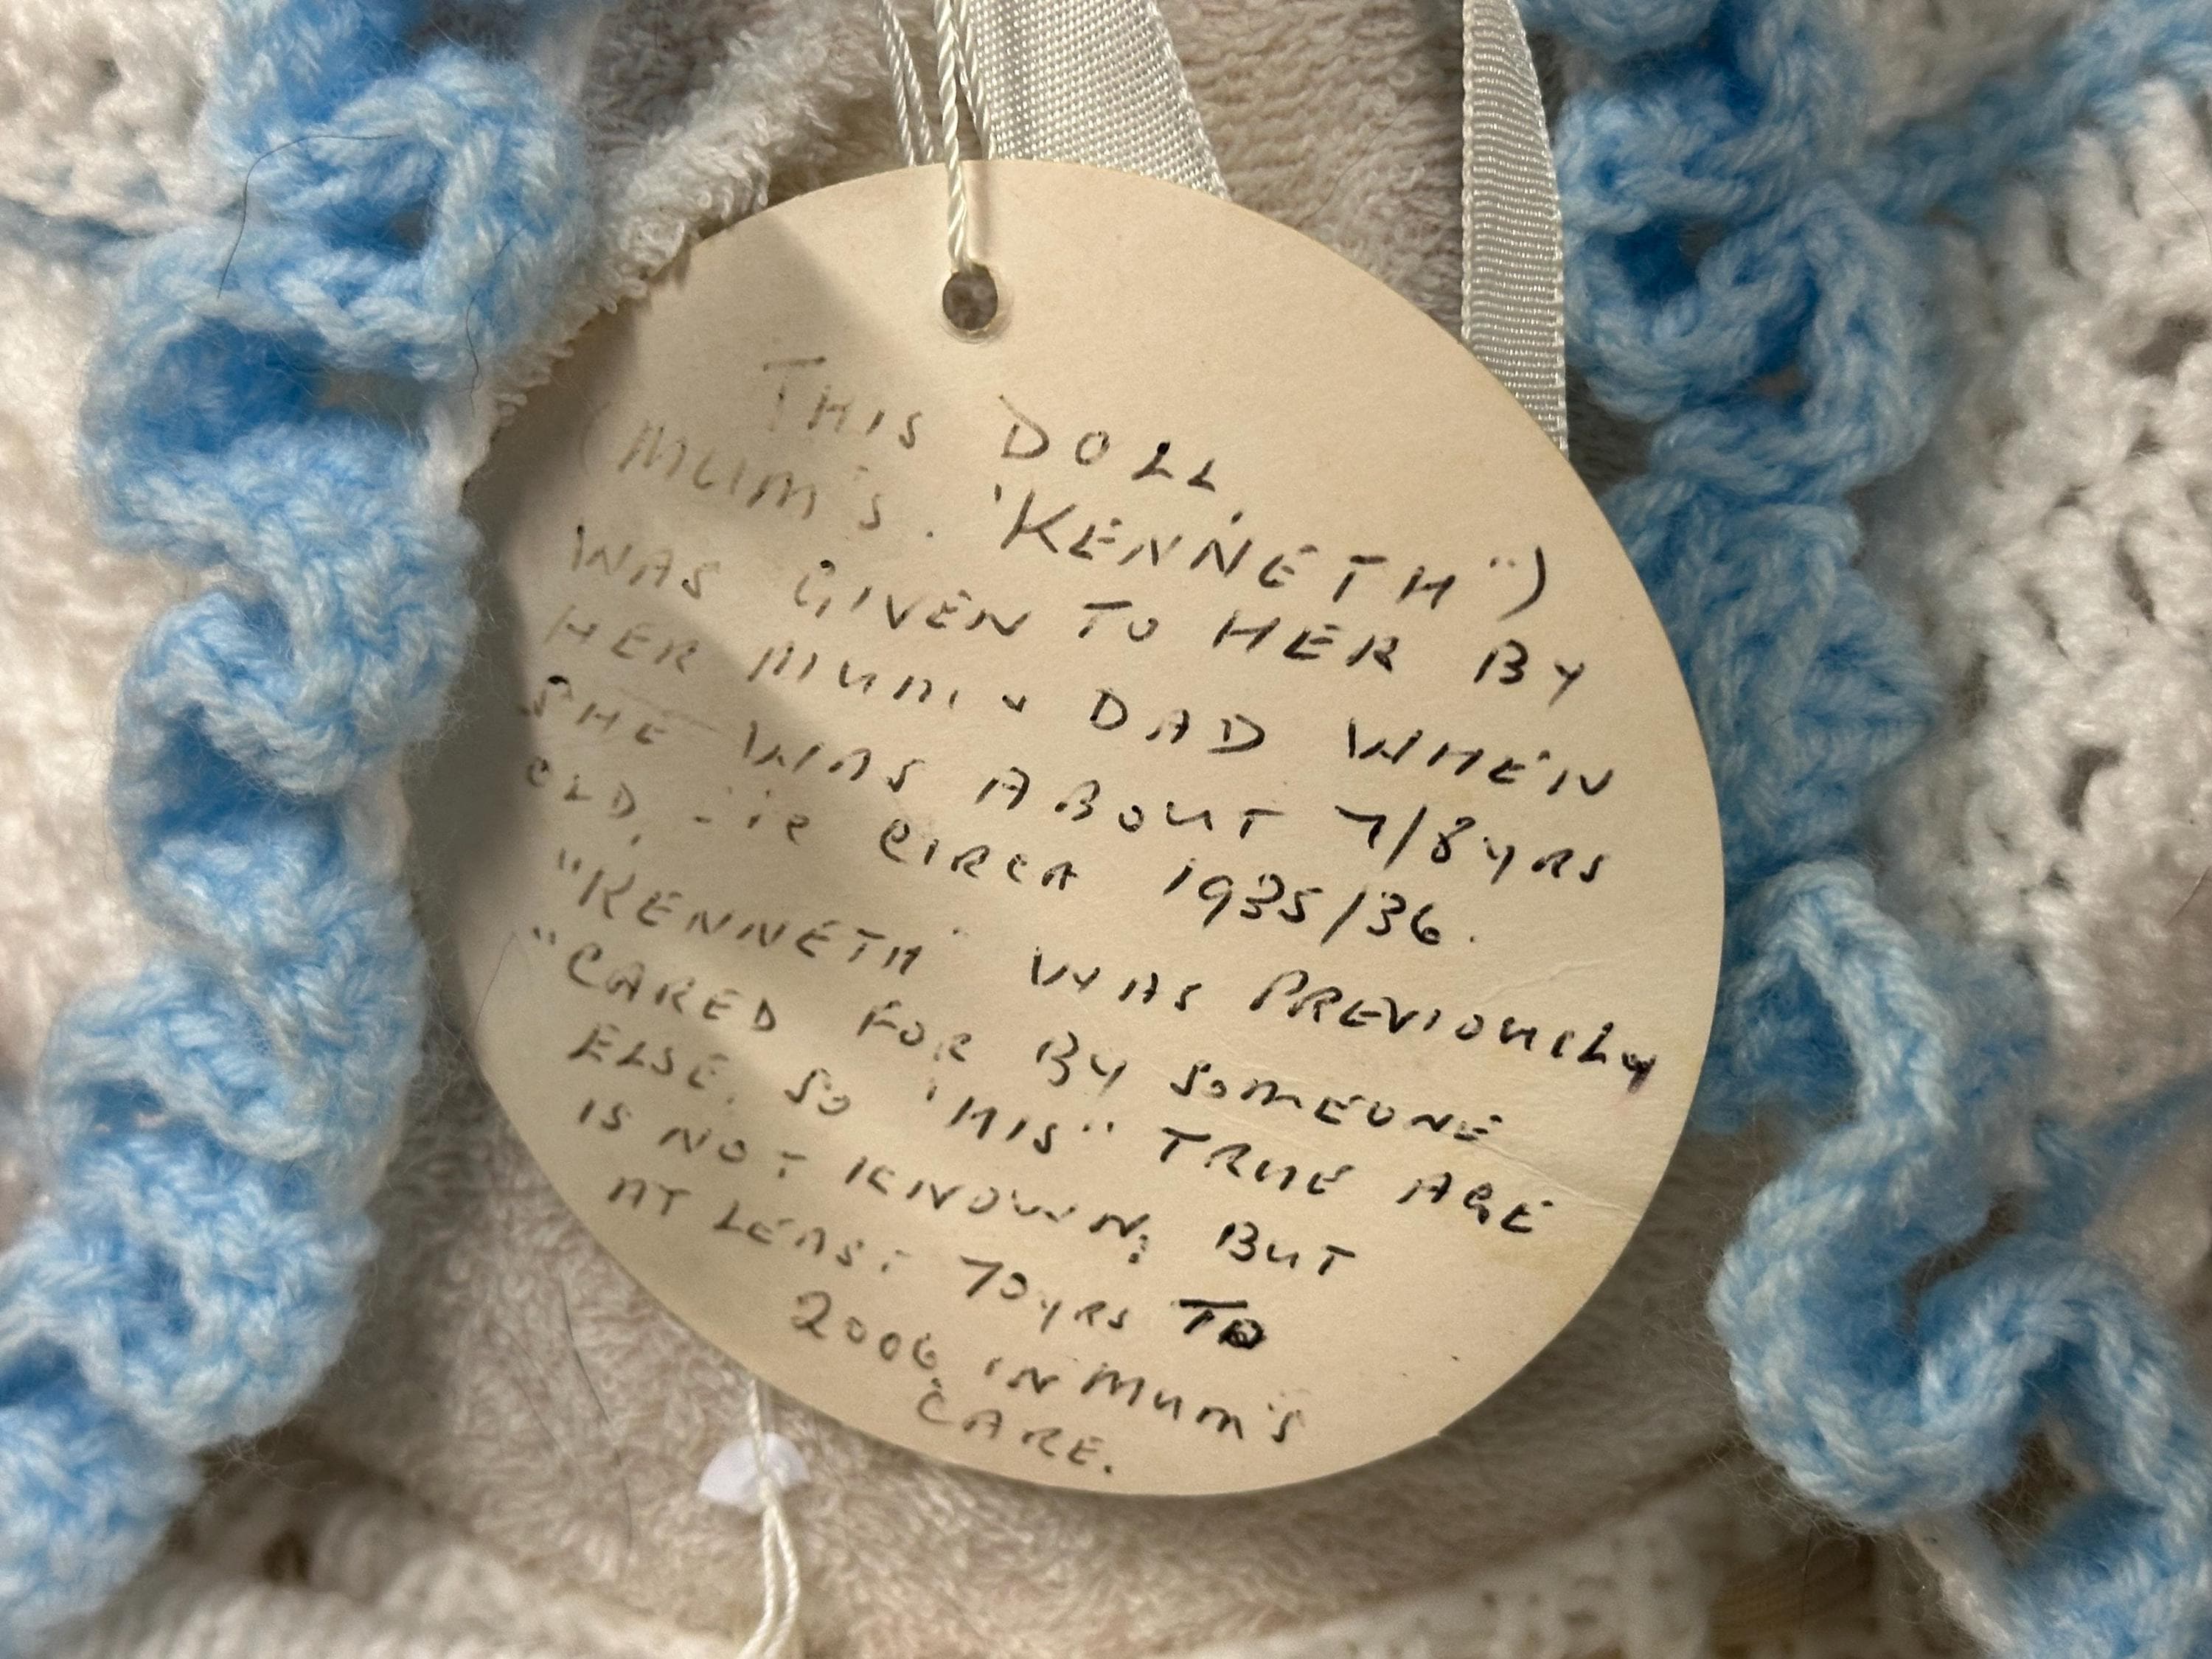 THIS DOLL,
(MUM'S. "KENNETH")
WAS GIVEN TO HER BY
HER MUM & DAD WHEN
SHE WAS ABOUT 7/8 YRS
OLD, - ie CIRCA 1935/36.
"KENNETH" WAS PREVIOUSLY
"CARED FOR BY SOMEONE
ELSE. SO "HIS" TRUE AGE
IS NOT KNOWN; BUT
AT LEAST 70 YRS TO
2006 IN MUM'S
CARE.